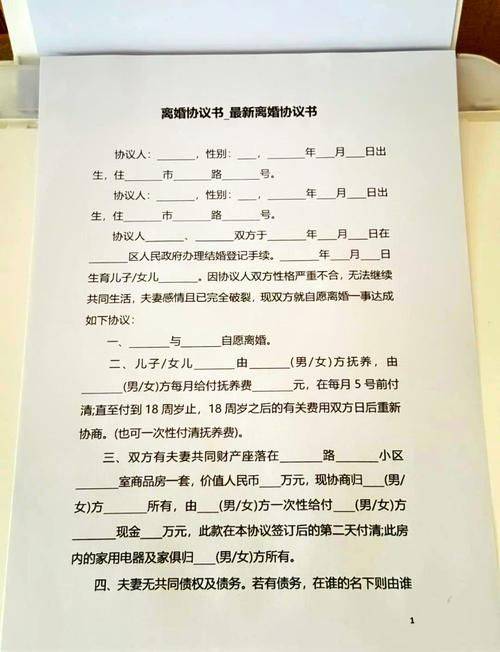 离婚协议书_最新离婚协议书
协议人：______，性别：___，______年___月___日出
生，住______市______路______号。
协议人：______，性别：___，______年___月___日出
生，住______市______路______号。
协议人______、______双方于______年___月___日在
______区人民政府办理结婚登记手续。______年___月___日
生育儿子/女儿______。因协议人双方性格严重不合，无法继续
共同生活，夫妻感情且已完全破裂，现双方就自愿离婚一事达成
如下协议：
一、______与______自愿离婚。
二、儿子/女儿______由______(男/女)方抚养，由
______(男/女)方每月给付抚养费______元，在每月5号前付
清;直至付到18周岁止，18周岁之后的有关费用双方日后重新
协商。(也可一次性付清抚养费)。
三、双方有夫妻共同财产座落在______路______小区
______室商品房一套，价值人民币___万元，现协商归___(男/
女)方______所有，由___(男/女)方一次性给付___(男/女)方
______现金___万元，此款在本协议签订后的第二天付清;此房
内的家用电器及家俱归___(男/女)方所有。
四、夫妻无共同债权及债务。若有债务，在谁的名下则由谁
1